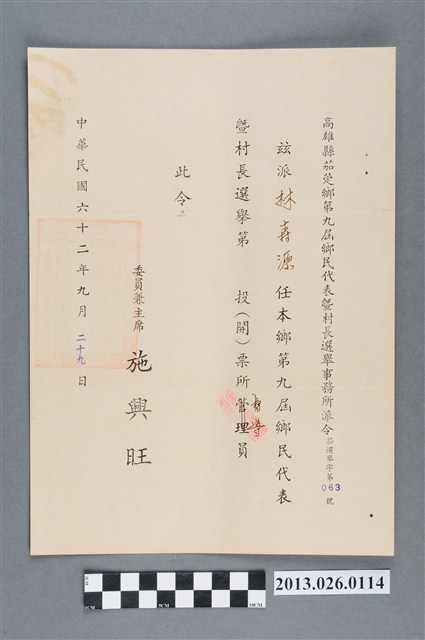 高雄縣茄萣鄉第九屆鄉民代表暨村長選舉事務所派令 茄選舉字第063號
茲派林壽源任本鄉第九屆鄉民代表
暨村長選舉第　投（開）票所管理員
此令
委員兼主席 施興旺
中華民國六十二年九月二十九日
2013.026.0114
0CM 5CM 10CM